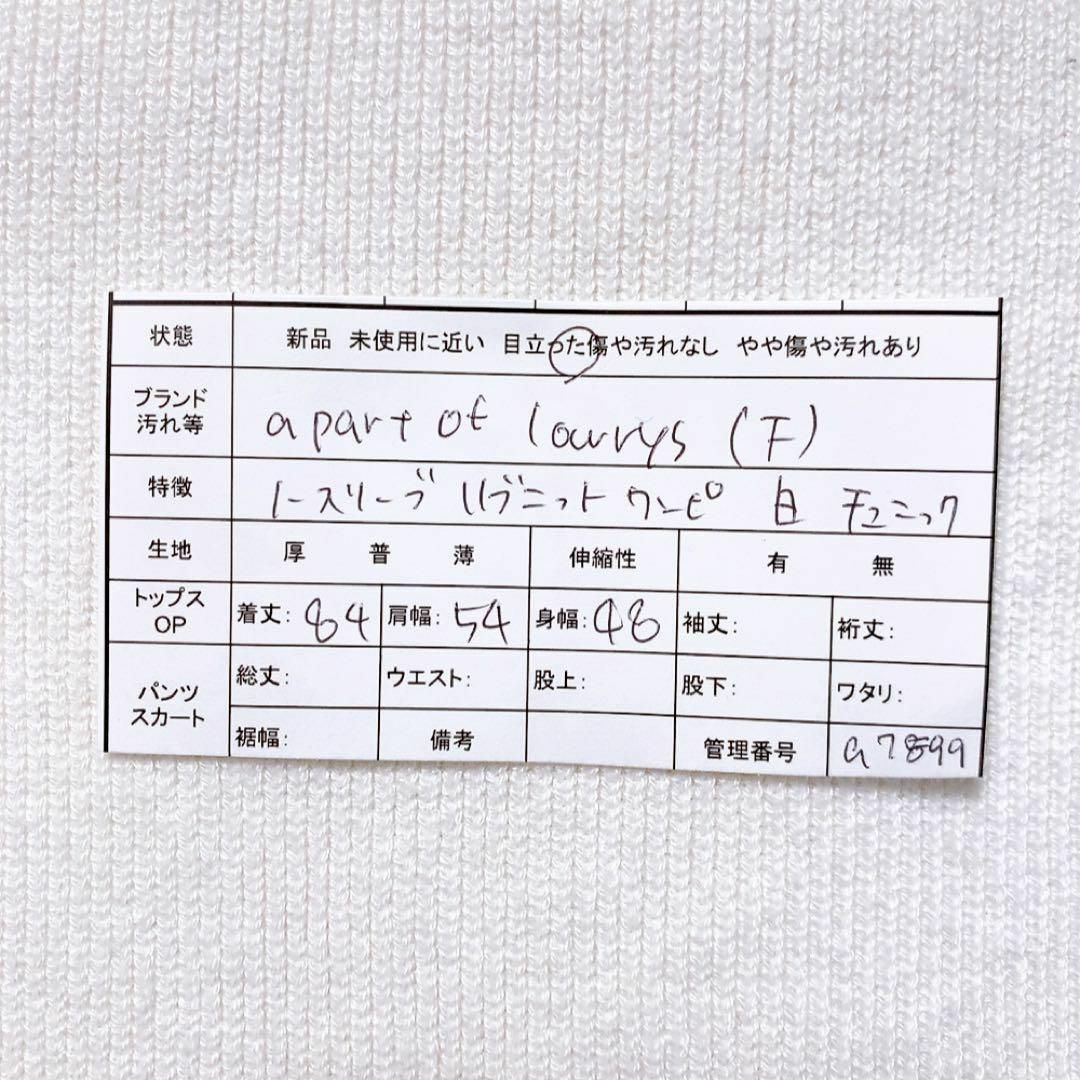 状態 新品 未使用に近い 目立った傷や汚れなし やや傷や汚れあり
ブランド
汚れ等 apart of lowrys (F)
特徴 ノースリーブ リブニット ワンピ 白 チュニック
生地 厚 普 薄 伸縮性 有 無
トップス
OP 着丈: 84 肩幅: 54 身幅: 48 袖丈: 裄丈:
パンツ
スカート 総丈: ウエスト: 股上: 股下: ワタリ:
裾幅: 備考 管理番号 a7899